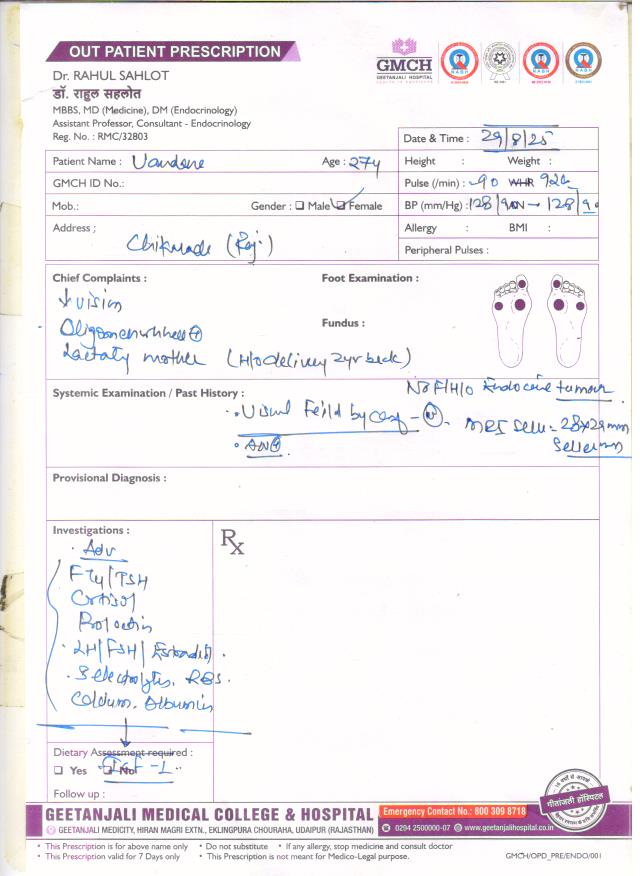 OUT PATIENT PRESCRIPTION
Dr. RAHUL SAHLOT
डॉ. राहुल सहलोत
MBBS, MD (Medicine), DM (Endocrinology)
Assistant Professor, Consultant - Endocrinology
Reg. No. : RMC/32803
GMCH
GEETANJALI HOSPITAL
NABH
NABH
NABH
Date & Time : 29/8/25
Patient Name : Age : 27y
Height : Weight :
GMCH ID No.:
Pulse (/min) : 90 WHR
Mob.: Gender : Male Female
BP (mm/Hg) : 128/90 128/90
Address ; (Raj.)
Allergy : BMI :
Peripheral Pulses :
Chief Complaints : Foot Examination :
↓ vision
Fundus :
mother (H/o delivery 2yr back)
No F/H/O Endocrine tumour
Systemic Examination / Past History :
Visual Feild by - N MRI Sella - 28x29mm
Provisional Diagnosis :
Investigations :
Rx
Adv
FT4/TSH
Cortisol
Prolactin
LH/FSH/Estradiol
S. electrolytes, RBS.
Calcium. Albumin
Dietary Assessment required :
Yes No IGF-1
Follow up :
GEETANJALI MEDICAL COLLEGE & HOSPITAL
Emergency Contact No.: 800 309 8718
GEETANJALI MEDICITY, HIRAN MAGRI EXTN., EKLINGPURA CHOURAHA, UDAIPUR (RAJASTHAN)
0294 2500000-07 www.geetanjalihospital.co.in
गीतांजली हॉस्पिटल
• This Prescription is for above name only • Do not substitute • If any allergy, stop medicine and consult doctor
• This Prescription valid for 7 Days only • This Prescription is not meant for Medico-Legal purpose.
GMCH/OPD_PRE/ENDO/001